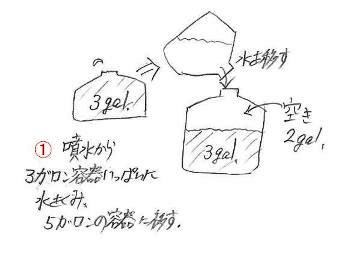 3gal.
水を移す
空き
2gal.
3gal.
① 噴水から
3ガロン容器いっぱいに
水をくみ、
5ガロンの容器に移す.